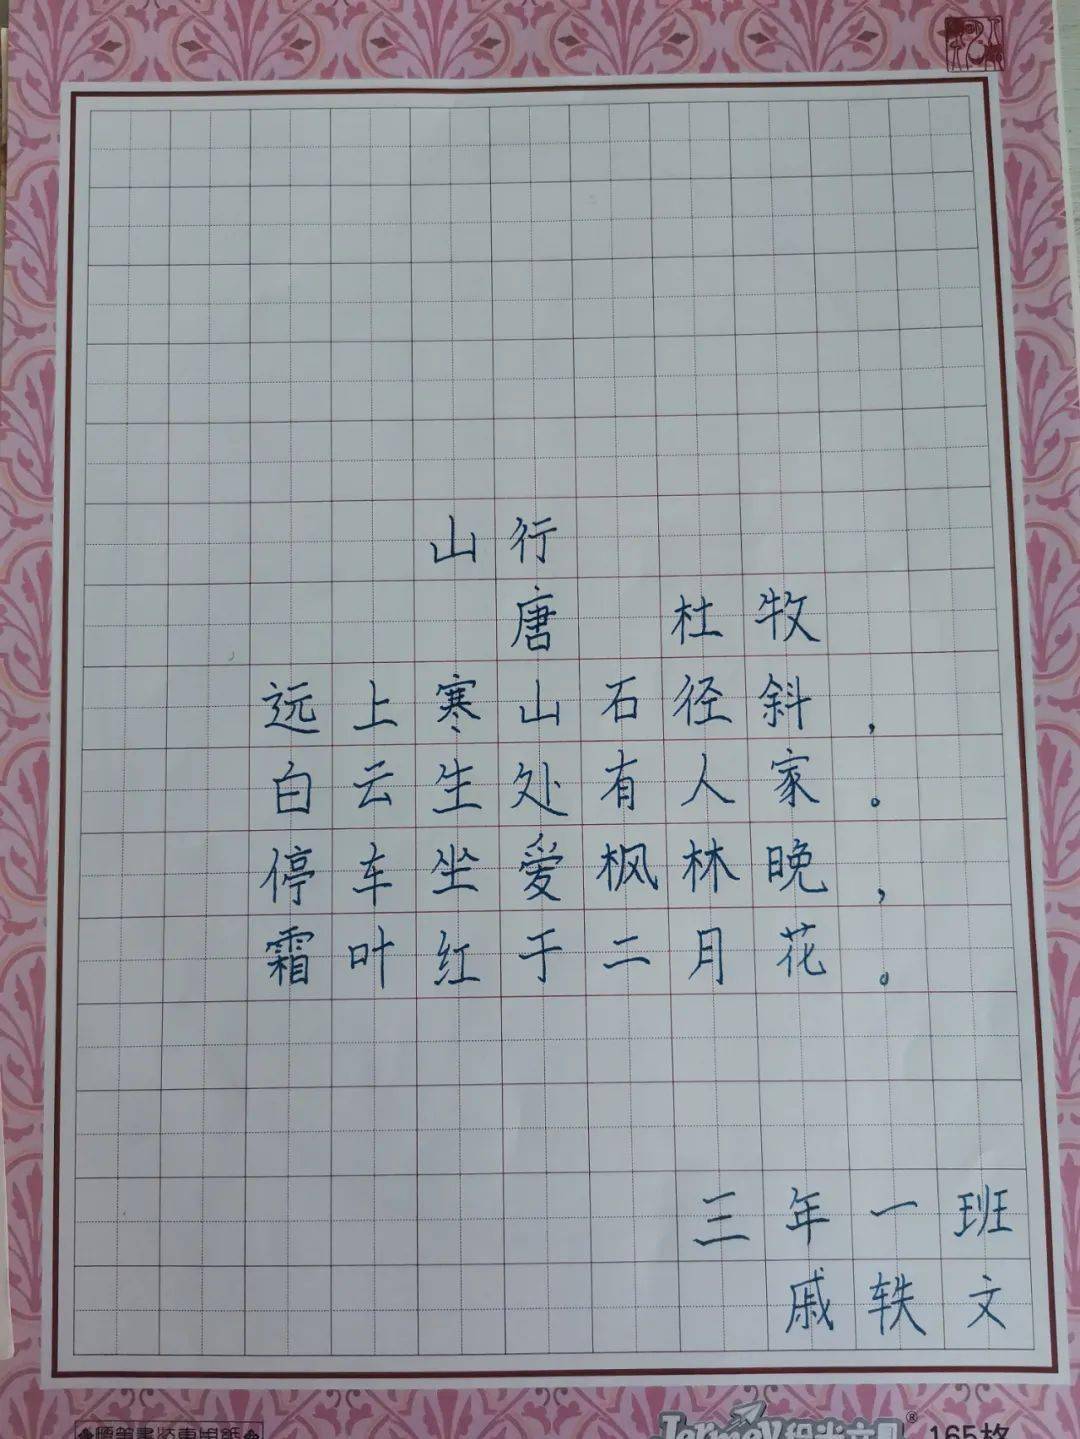 山行
唐 杜牧
远上寒山石径斜，
白云生处有人家。
停车坐爱枫林晚，
霜叶红于二月花。
三年一班
戚轶文
165格